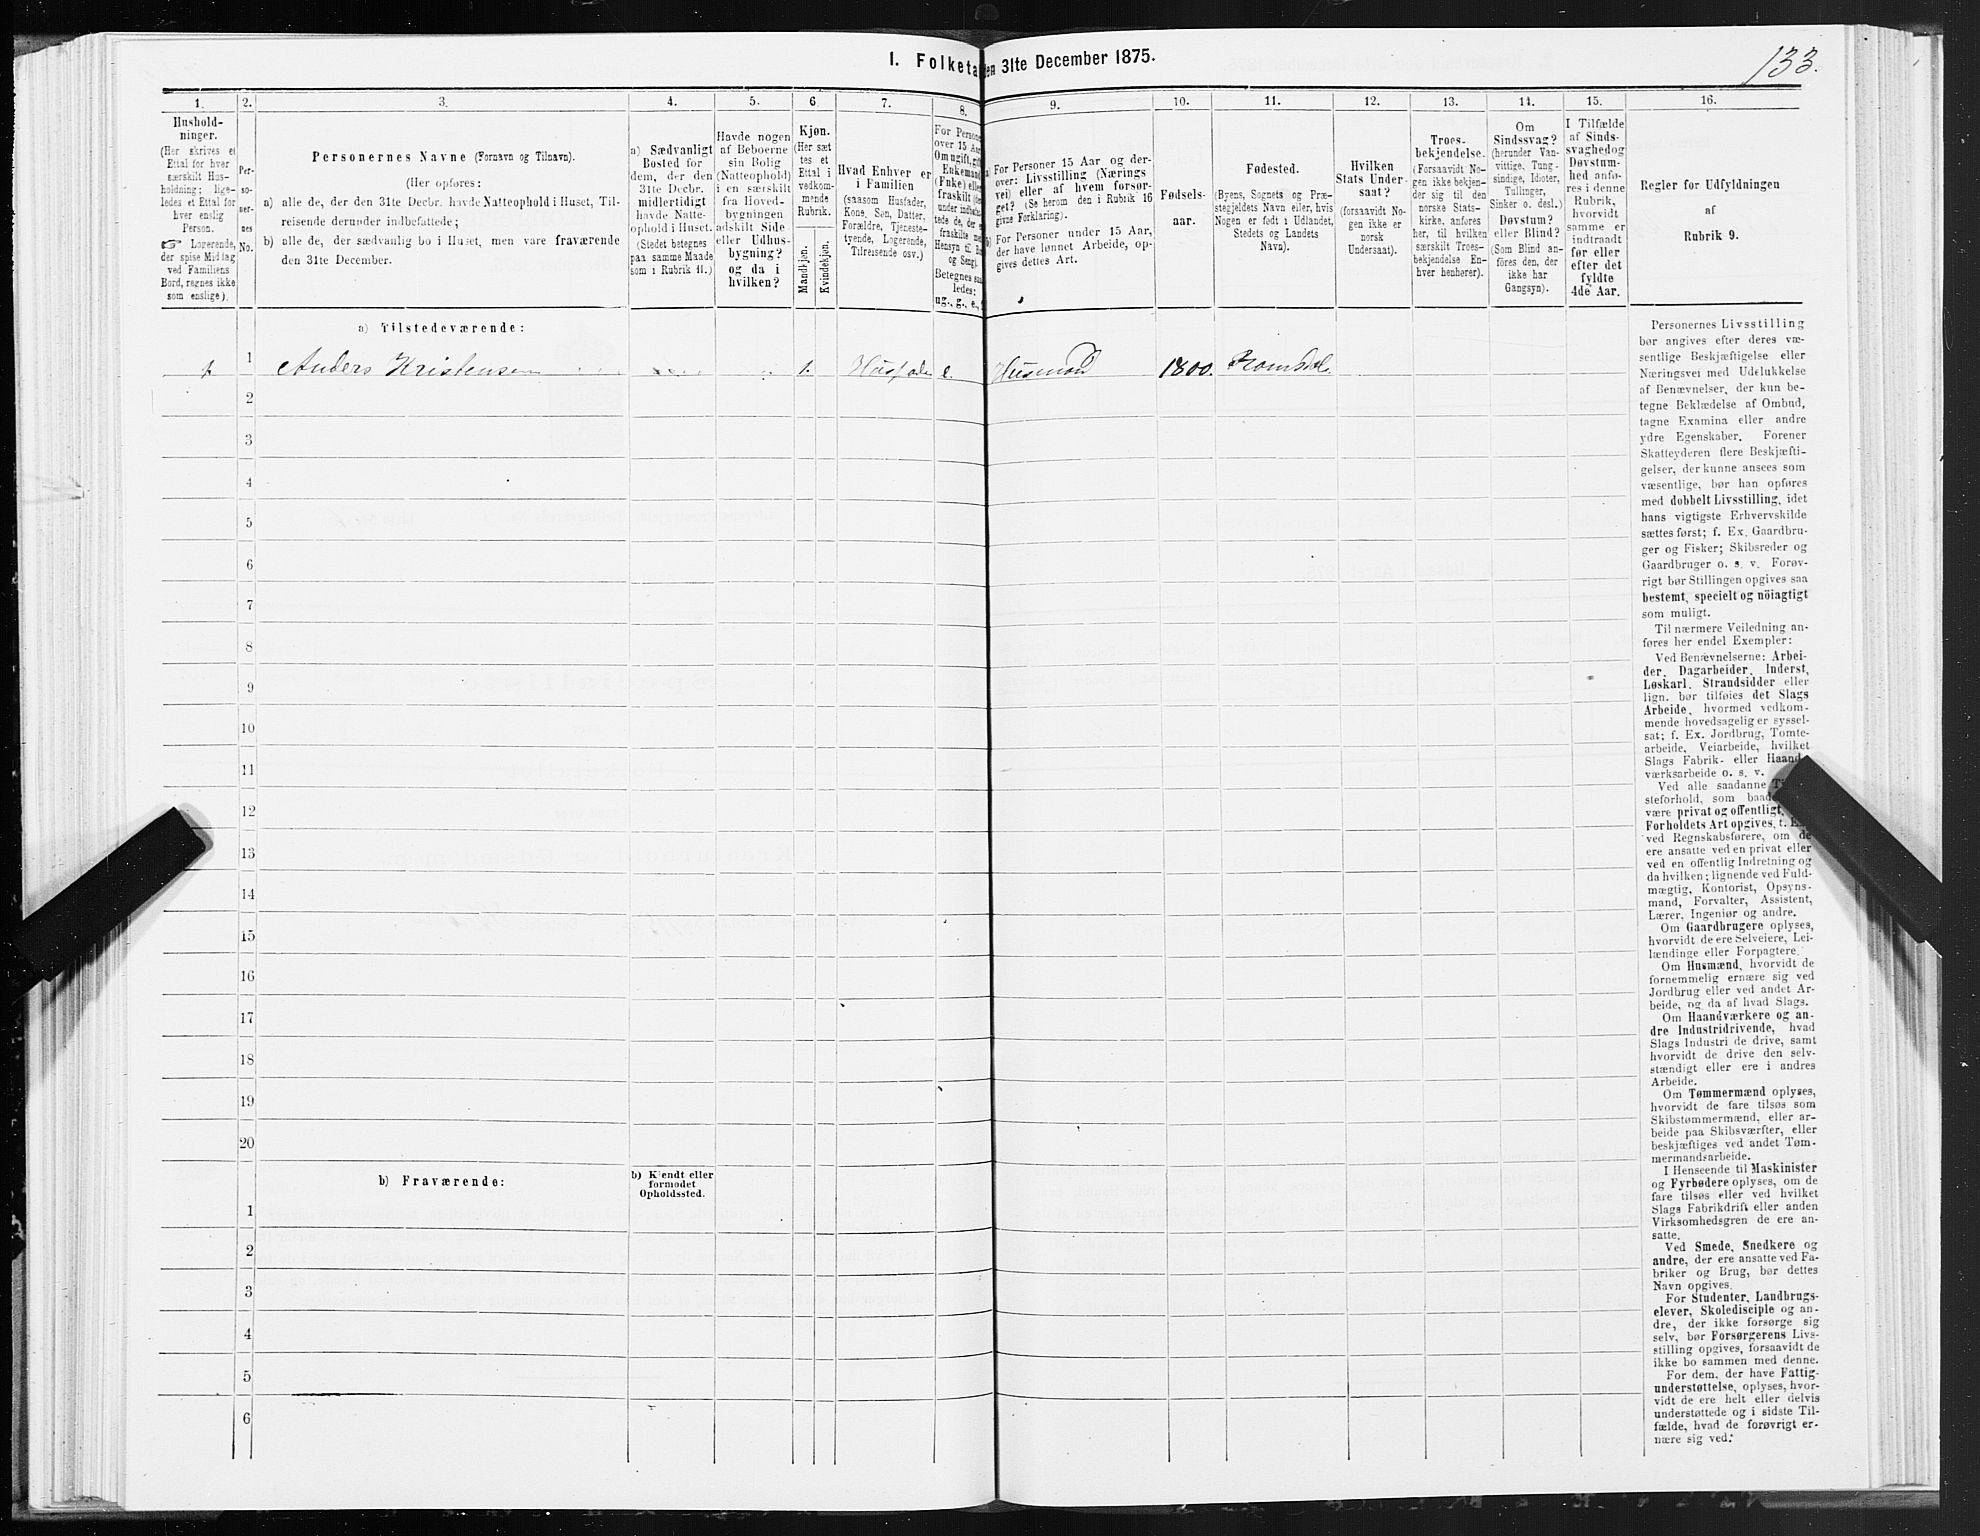 133.
1. Folketa
en 31te December 1875.
1. 2. 3. 4. 5. 6. 7. 8. 9. 10. 11. 12. 13. 14. 15. 16.
Hushold-
ninger.
(Her skrives et
Ettal for hver
særskilt Hus-
holdning; lige-
ledes et Ettal for
hver enslig
Person.
☞ Logerende,
der spise Middag
ved Familiens
Bord, regnes ikke
som enslige).
Per-
so-
ner-
nes
No.
Personernes Navne (Fornavn og Tilnavn).
(Her opføres:
a) alle de, der den 31te Decbr. havde Natteophold i Huset, Til-
reisende derunder indbefattede;
b) alle de, der sædvanlig bo i Huset, men vare fraværende
den 31te December.
a) Sædvanligt
Bosted for
dem, der den
31te Decbr.
midlertidigt
havde Natte-
ophold i Huset.
(Stedet betegnes
paa samme Maade
som i Rubrik 11.)
Havde nogen
af Beboerne
sin Bolig
(Natteophold)
i en særskilt
fra Hoved-
bygningen
adskilt Side-
eller Udhus-
bygning?
og da i
hvilken?
Kjøn.
(Her sæt-
tes et
Ettal i
vedkom-
mende
Rubrik.
Mandkjøn.
Kvindekjøn.
Hvad Enhver er
i Familien
(saasom Husfader,
Kone, Søn, Datter,
Forældre, Tjeneste-
tyende, Logerende,
Tilreisende osv.)
For Persone
over 15 Aar
Om ugift, gift
Enkemand
(Enke) elle
fraskilt
under indbe
tede de, der e
fraskilte m
Hensyn til B
og Seng).
Betegnes saa
ledes:
ug., g., e.,
a) For Personer 15 Aar og der-
over: Livsstilling (Nærings
vei) eller af hvem forsør-
get? (Se herom den i Rubrik 16
givne Forklaring).
b) For Personer under 15 Aar,
der have lønnet Arbeide, op-
gives dettes Art.
Fødsels-
aar.
Fødested.
(Byens, Sognets og Præ-
stegjeldets Navn eller, hvis
Nogen er født i Udlandet,
Stedets og Landets
Navn).
Hvilken
Stats Under-
saat?
(forsaavidt No-
gen ikke er
norsk
Undersaat).
Troes-
bekjendelse.
(Forsaavidt No-
gen ikke bekjen-
der sig til den
norske Stats-
kirke, anføres
her, til hvilken
særskilt Troes-
bekjendelse En-
hver henhører).
Om
Sindssvag?
(herunder Van-
vittige, Tung-
sindige, Idioter,
Tullinger,
Sinker o. desl.)
Døvstum?
eller Blind?
(Som Blind an-
føres den, der
ikke har
Gangsyn).
I Tilfælde
af Sinds-
svaghed og
Døvstum-
hed anfø-
res i denne
Rubrik,
hvorvidt
samme er
indtraadt
før eller
efter det
fyldte
4de Aar.
Regler for Udfyldningen
af
Rubrik 9.
a) Tilstedeværende:
1 Anders Kristensen 1. e. Husmand 1800. Romsdal
2
3
4
5
6
7
8
9
10
11
12
13
14
15
16
17
18
19
20
b) Fraværende:
b) Kjendt eller
formodet
Opholdssted.
1
2
3
4
5
6
Personernes Livsstilling
bør angives efter deres væ-
sentlige Beskjæftigelse eller
Næringsvei med Udelukkelse
af Benævnelser, der kun be-
tegne Beklædelse af Ombud,
tagne Examina eller andre
ydre Egenskaber. Forener
Skatteyderen flere Beskjæfti-
gelser, der kunne ansees som
væsentlige, bør han opføres
med dobbelt Livsstilling, idet
hans vigtigste Erhvervskilde
sættes først; f. Ex. Gaardbru-
ger og Fisker; Skibsreder og
Gaardbruger o. s. v. Forøv-
rigt bør Stillingen opgives saa
bestemt, specielt og nöiagtigt
som muligt.
Til nærmere Veiledning an-
føres her endel Exempler:
Ved Benævnelserne: Arbei-
der, Dagarbeider, Inderst,
Løskarl, Strandsidder eller
lign. bør tilføies det Slags
Arbeide, hvormed vedkom-
mende hovedsagelig er syssel-
sat; f. Ex. Jordbrug, Tomte-
arbeide, Veiarbeide, hvilket
Slags Fabrik- eller Haand-
værksarbeide o. s. v.
Ved alle saadanne
steforhold, som baade
være privat og offentligt,
Forholdets Art opgives, t. Ex.
ved Regnskabsførere, om de
ere ansatte ved en privat eller
ved en offentlig Indretning og
da hvilken; lignende ved Fuld-
mægtig, Kontorist, Opsyns-
mand, Forvalter, Assistent,
Lærer, Ingeniør og andre.
Om Gaardbrugere oplyses,
hvorvidt de ere Selveiere, Lei-
lændinge eller Forpagtere.
Om Husmænd, hvorvidt de
fornemmelig ernære sig ved
Jordbrug eller ved andet Ar-
beide, og da af hvad Slags.
Om Haandværkere og an-
dre Industridrivende, hvad
Slags Industri de drive, samt
hvorvidt de drive den selv-
stændigt eller ere i andres
Arbeide.
Om Tømmermænd oplyses,
hvorvidt de fare tilsøs som
Skibstømmermænd, eller ar-
beide paa Skibsværfter, eller
beskjæftiges ved andet Tøm-
mermandsarbeide.
I Henseende til Maskinister
og Fyrbødere oplyses, om de
fare tilsøs eller ved hvilket
Slags Fabrikdrift eller anden
Virksomhedsgren de ere an-
satte.
Ved Smede, Snedkere og
andre, der ere ansatte ved Fa-
briker og Brug, bør dettes
Navn opgives.
For Studenter, Landbrugs-
elever, Skoledisciple og an-
dre, der ikke forsørge sig
selv, bør Forsørgerens Livs-
stilling opgives, forsaavidt de
ikke bo sammen med denne.
For dem, der have Fattig-
understøttelse, oplyses, hvor-
vidt de ere helt eller delvis
understøttede og i sidste Til-
fælde, hvad de forøvrigt er-
nære sig ved.